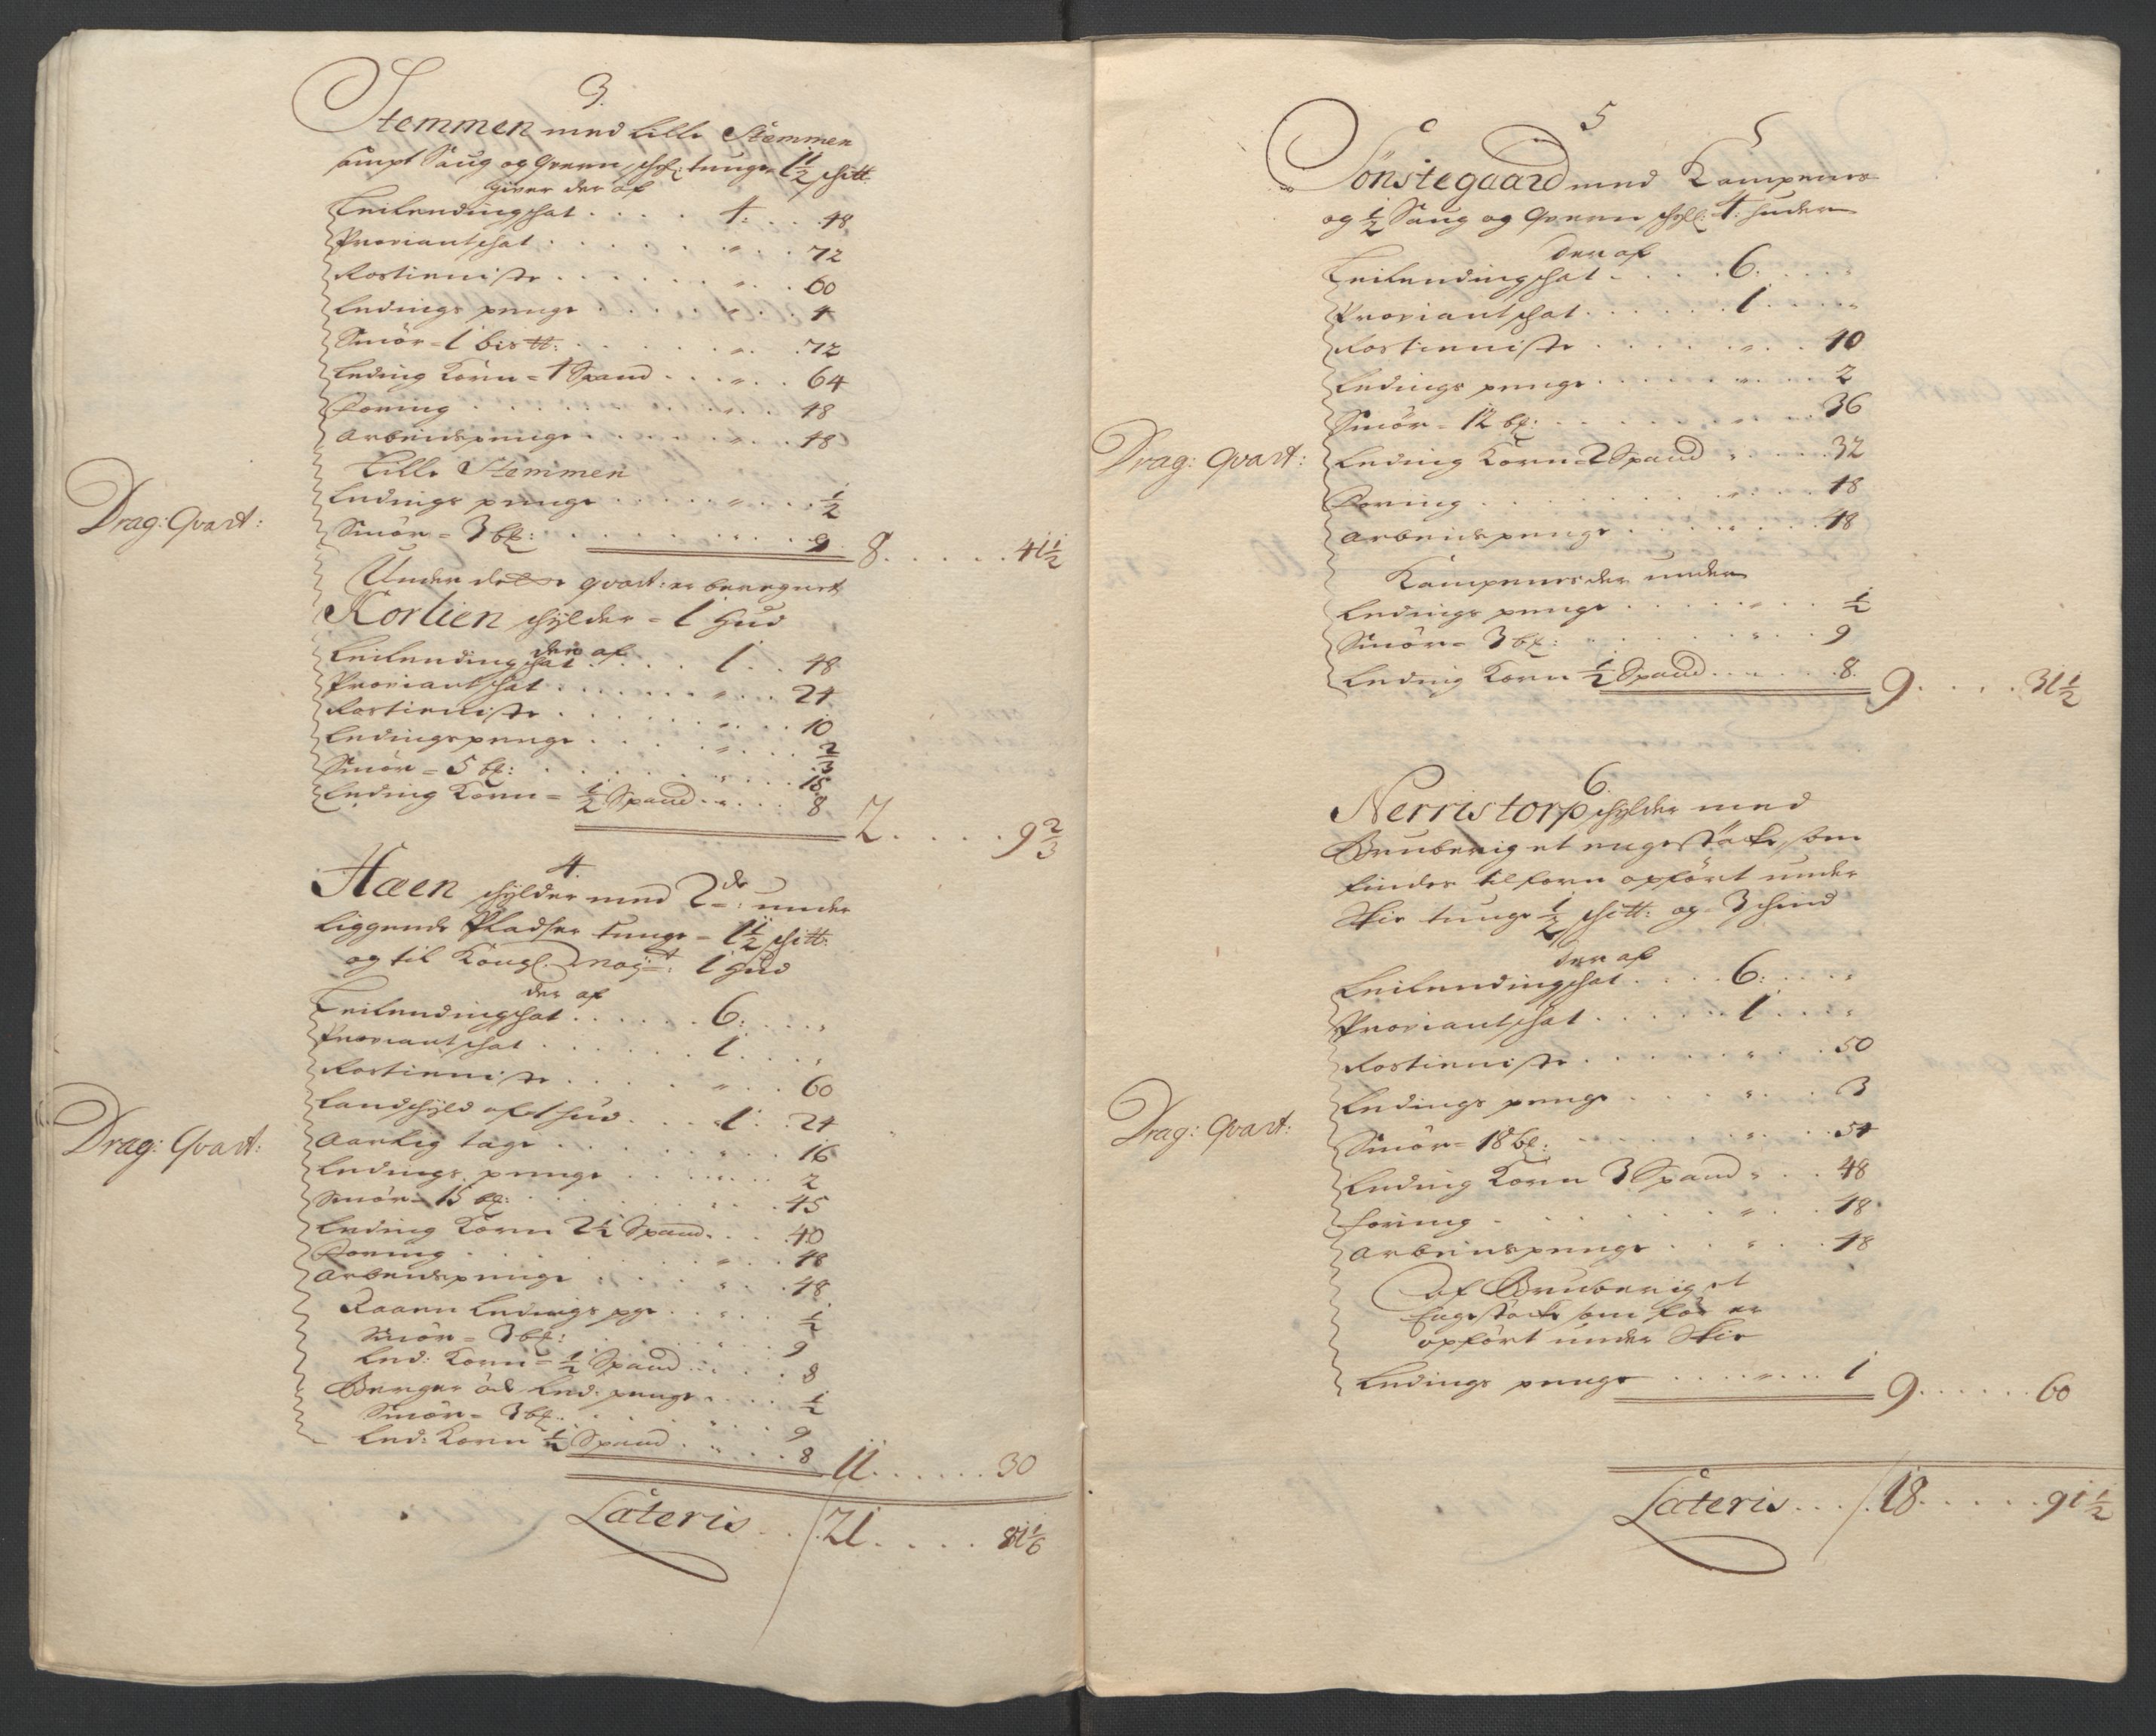 3.
Stemmen med Lille Stemmen
sampt Saug og Qvern schl: tunge 1½ sch℔
giver der af
Leilendingschat . . . . 4: . . 48
Proviantschat . . . . . " . . 72
Rostieniste . . . . . " . . 60
Ledings penge . . . . . " . . 4
Smör = 1 bis℔: . . . . . " . . 72
Leding Korn = 4 Spand . . . " . . 64
Foring . . . . . " . . 48
Arbeidspenge . . . . . " . . 48
Lille Stemmen
Ledings penge . . . . . " . . ½
Drag: Qvart:
Smör = 3 b℔: . . . . . " . . 9 8 . . . . . 41½
Under dette qvart: er beregnet
Kortien schylder = 1 Hud
der af
Leilendingschat . . . . 1 . . 48
Proviantschat . . . . . " . . 24
Rostieniste . . . . . " . . 10
Ledingspenge . . . . . " . . ⅔
Smör = 5 b℔: . . . . . " . . 15
Leding Korn = ½ Spand . . " . . 8
2 . . . . . 9⅔
4.
Haen schylder med 2de: under
liggende Pladser tunge = 1½ sch℔:
og til Kongl. Mayt: 1 Hud
der af
Leilendingschat . . . . . 6: . . "
Proviantschat . . . . . 1 . . "
Rostieniste . . . . . " . . 60
Landschyld af 1 hud . . . 1 . . 24
Drag: Qvart:
Aarlig tage . . . . . " . . 16
Ledings penge . . . . . " . . 2
Smör = 15 b℔: . . . . . " . . 45
Leding Korn 2½ Spand . . . 40
Foring . . . . . " . . 48
Arbeidspenge . . . . . " . . 48
Raaen Ledings pge . . " . . ½
Smör = 3 b℔: . . . . . 9
Led: Korn = ½ Spand . . . . 8
Berger öd Led: penge . . . . ½
Smör = 3 b℔: . . . . " . . 9
Led: Korn ½ Spand . . " . . 8 11 . . . . . . 30
Lateris . . /. 21 . . . . . 81⅙
5
Tönstegaard med Kampenes
og ½ Saug og Qvern schyl: 4: huder
der af
Leilendingschat . . . . 6: . . . "
Proviantschat . . . . . 1 . . . "
Rostieniste . . . . . " . . 40
Ledings penge . . . . . " . . 2
Smör = 12 b℔: . . . . . " . . 36
Drag: Qvart:
Leding Korn = 2 Spand . " . . . 32
Foring . . . . . " . . 48
Arbeidspenge . . . . . " . . 48
Kampenes der under
Ledings penge . . . . . " . . ½
Smör = 3 b℔: . . . . . " . . 9
Leding Korn ½ Spand . . . . . 8. 9 . . . . . 31½
6.
Nerristorp schylder med
Bruberig et engestöcke, som
findes tilforn opfört under
Skie tunge ½ sch℔: og 3 schind
der af
Leilendingschat . . . . 6: . . . "
Proviantschat . . . . . 1 . . . "
Rostieniste . . . . . " . . 50
Ledings penge . . . . . " . . 3
Drag: Qvart:
Smör = 18 b℔: . . . . . " . . 54
Leding Korn 3 Spand " . . 48
Foring . . . . . " . . 48
Arbeidspenge . . . . " . . 48
Af Bruberig et
Engestöcke som för er
opfört under Skie
Ledings penge . . . . . " . . 1 9 . . . . . . 60
Lateris . . . /. 18 . . . . . 91½